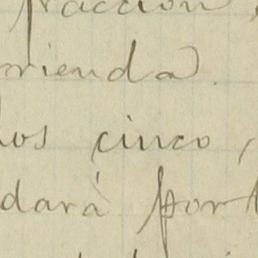 fracción
rienda.
los cinco,
dará por